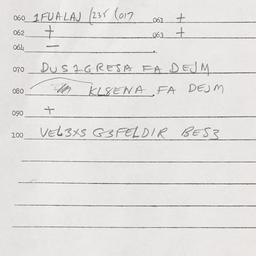 060 1FUALAJ (235 (017 061 +
062 + 063 +
064 —
070 DUS1GRESA FA DEJM
080 KLSENA FA DEJM
090 +
100 VEL3XS G3FELDIR BES3